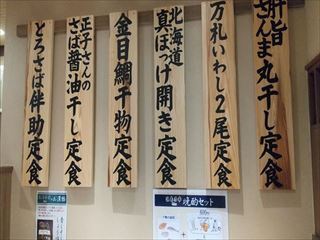 肝旨
さんま丸干し定食
万札いわし2尾定食
北海道
真ほっけ開き定食
金目鯛干物定食
正子さんの
さば醤油干し定食
とろさば伴助定食
焼酎セット